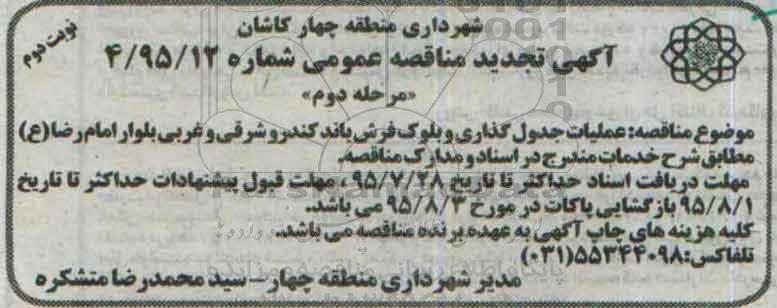 شهرداری منطقه چهار کاشان
نوبت دوم
آگهی تجدید مناقصه عمومی شماره ۴/۹۵/۱۲
«مرحله دوم»
موضوع مناقصه: عملیات جدول گذاری و بلوک فرش باند کندرو شرقی و غربی بلوار امام رضا (ع)
مطابق شرح خدمات مندرج در اسناد و مدارک مناقصه.
مهلت دریافت اسناد حداکثر تا تاریخ ۹۵/۷/۲۸ ، مهلت قبول پیشنهادات حداکثر تا تاریخ
۹۵/۸/۱ بازگشایی پاکات در مورخ ۹۵/۸/۳ می باشد.
کلیه هزینه های چاپ آگهی به عهده برنده مناقصه می باشد.
تلفاکس: ۵۵۳۴۴۰۹۸ (۰۳۱)
مدیر شهرداری منطقه چهار - سید محمدرضا متشکره